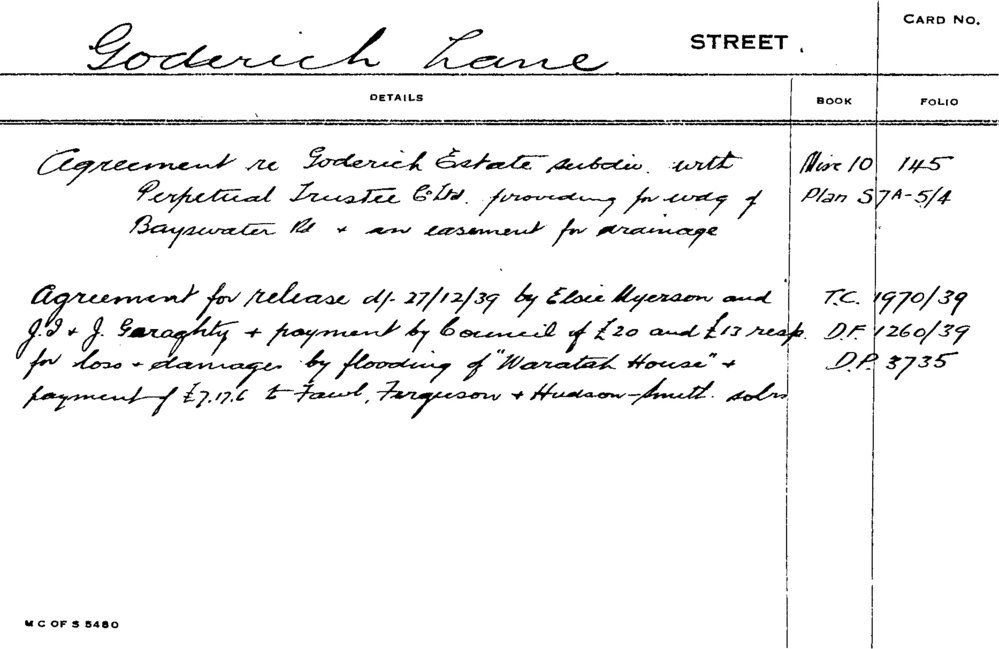 CARD No.
Goderich Lane STREET.
DETAILS BOOK FOLIO
Agreement re Goderich Estate subdiv. with Misc 10 145
Perpetual Trustee Co Ltd. providing for wdg of Plan S7A-5/4
Bayswater Rd + an easement for drainage
Agreement for release d/- 27/12/39 by Elsie Myerson and T.C. 1970/39
J.I + J. Garaghty + payment by Council of £20 and £13 resp. D.F. 1260/39
for loss + damages by flooding of "Waratah House" + D.P. 3735
payment of £7.17.6 to Fawl, Ferguson + Hudson-Smith. solrs
M C OF S 5480